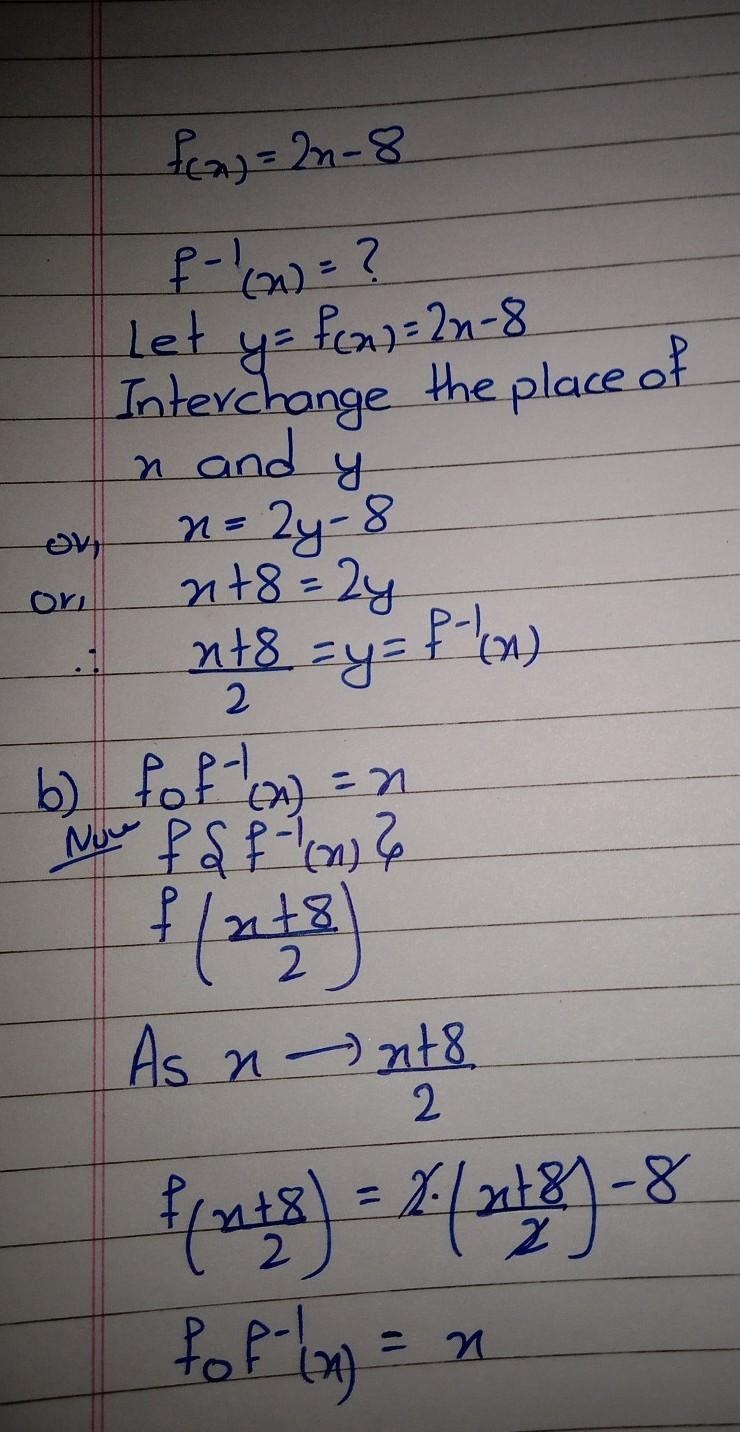 f(x) = 2x - 8
f⁻¹(x) = ?
Let y = f(x) = 2x - 8
Interchange the place of
x and y
or, x = 2y - 8
or, x + 8 = 2y
∴ (x + 8)/2 = y = f⁻¹(x)
b) fof⁻¹(x) = x
Now f{f⁻¹(x)}
f((x + 8)/2)
As x → (x + 8)/2
f((x + 8)/2) = 2·((x + 8)/2) - 8
fof⁻¹(x) = x